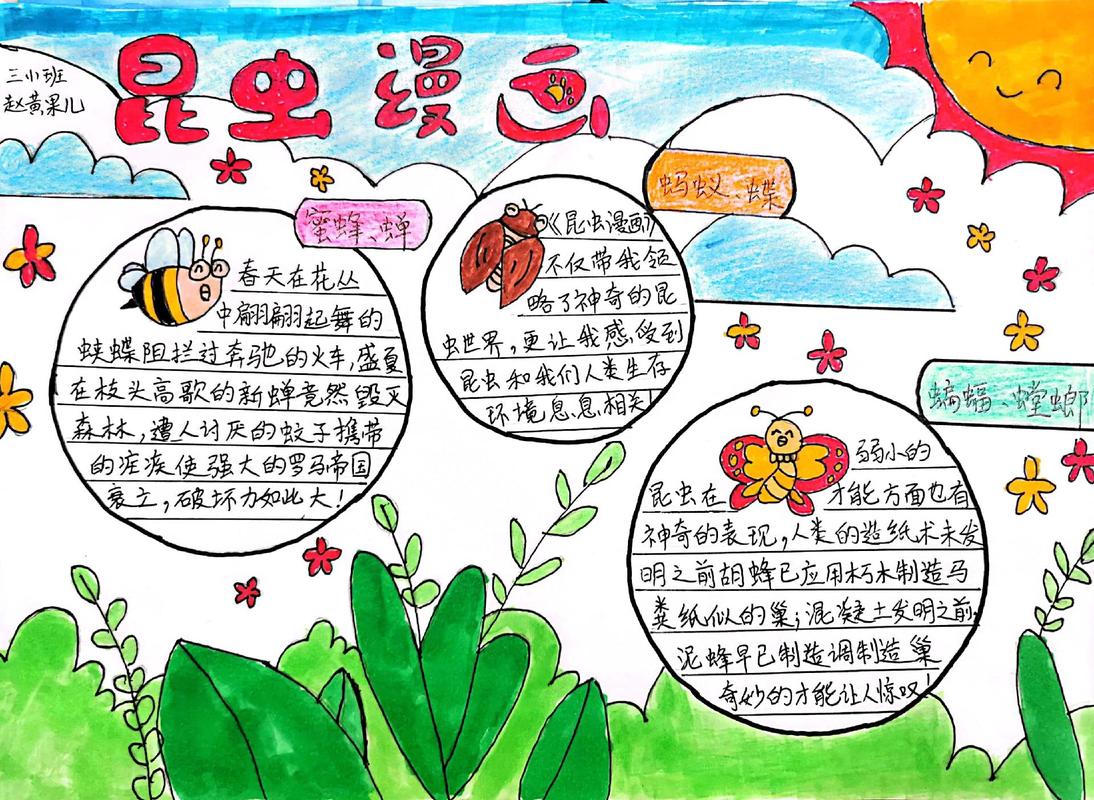 昆虫漫画
三小班
赵黄果儿
蜜蜂、蝉
春天在花丛
中翩翩起舞的
蛱蝶阻拦过奔驰的火车,盛夏
在枝头高歌的新蝉竟然毁灭
森林,遭人讨厌的蚊子携带
的疟疾使强大的罗马帝国
衰亡,破坏力如此大!
蚂蚁、蝶
《昆虫漫画》
不仅带我领
略了神奇的昆
虫世界,更让我感受到
昆虫和我们人类生存
环境息息相关!
蝙蝠、螳螂
弱小的
昆虫在 才能方面也有
神奇的表现,人类的造纸术未发
明之前胡蜂已应用朽木制造马
粪纸似的巢;混凝土发明之前,
泥蜂早已制造调制造巢
奇妙的才能让人惊叹!